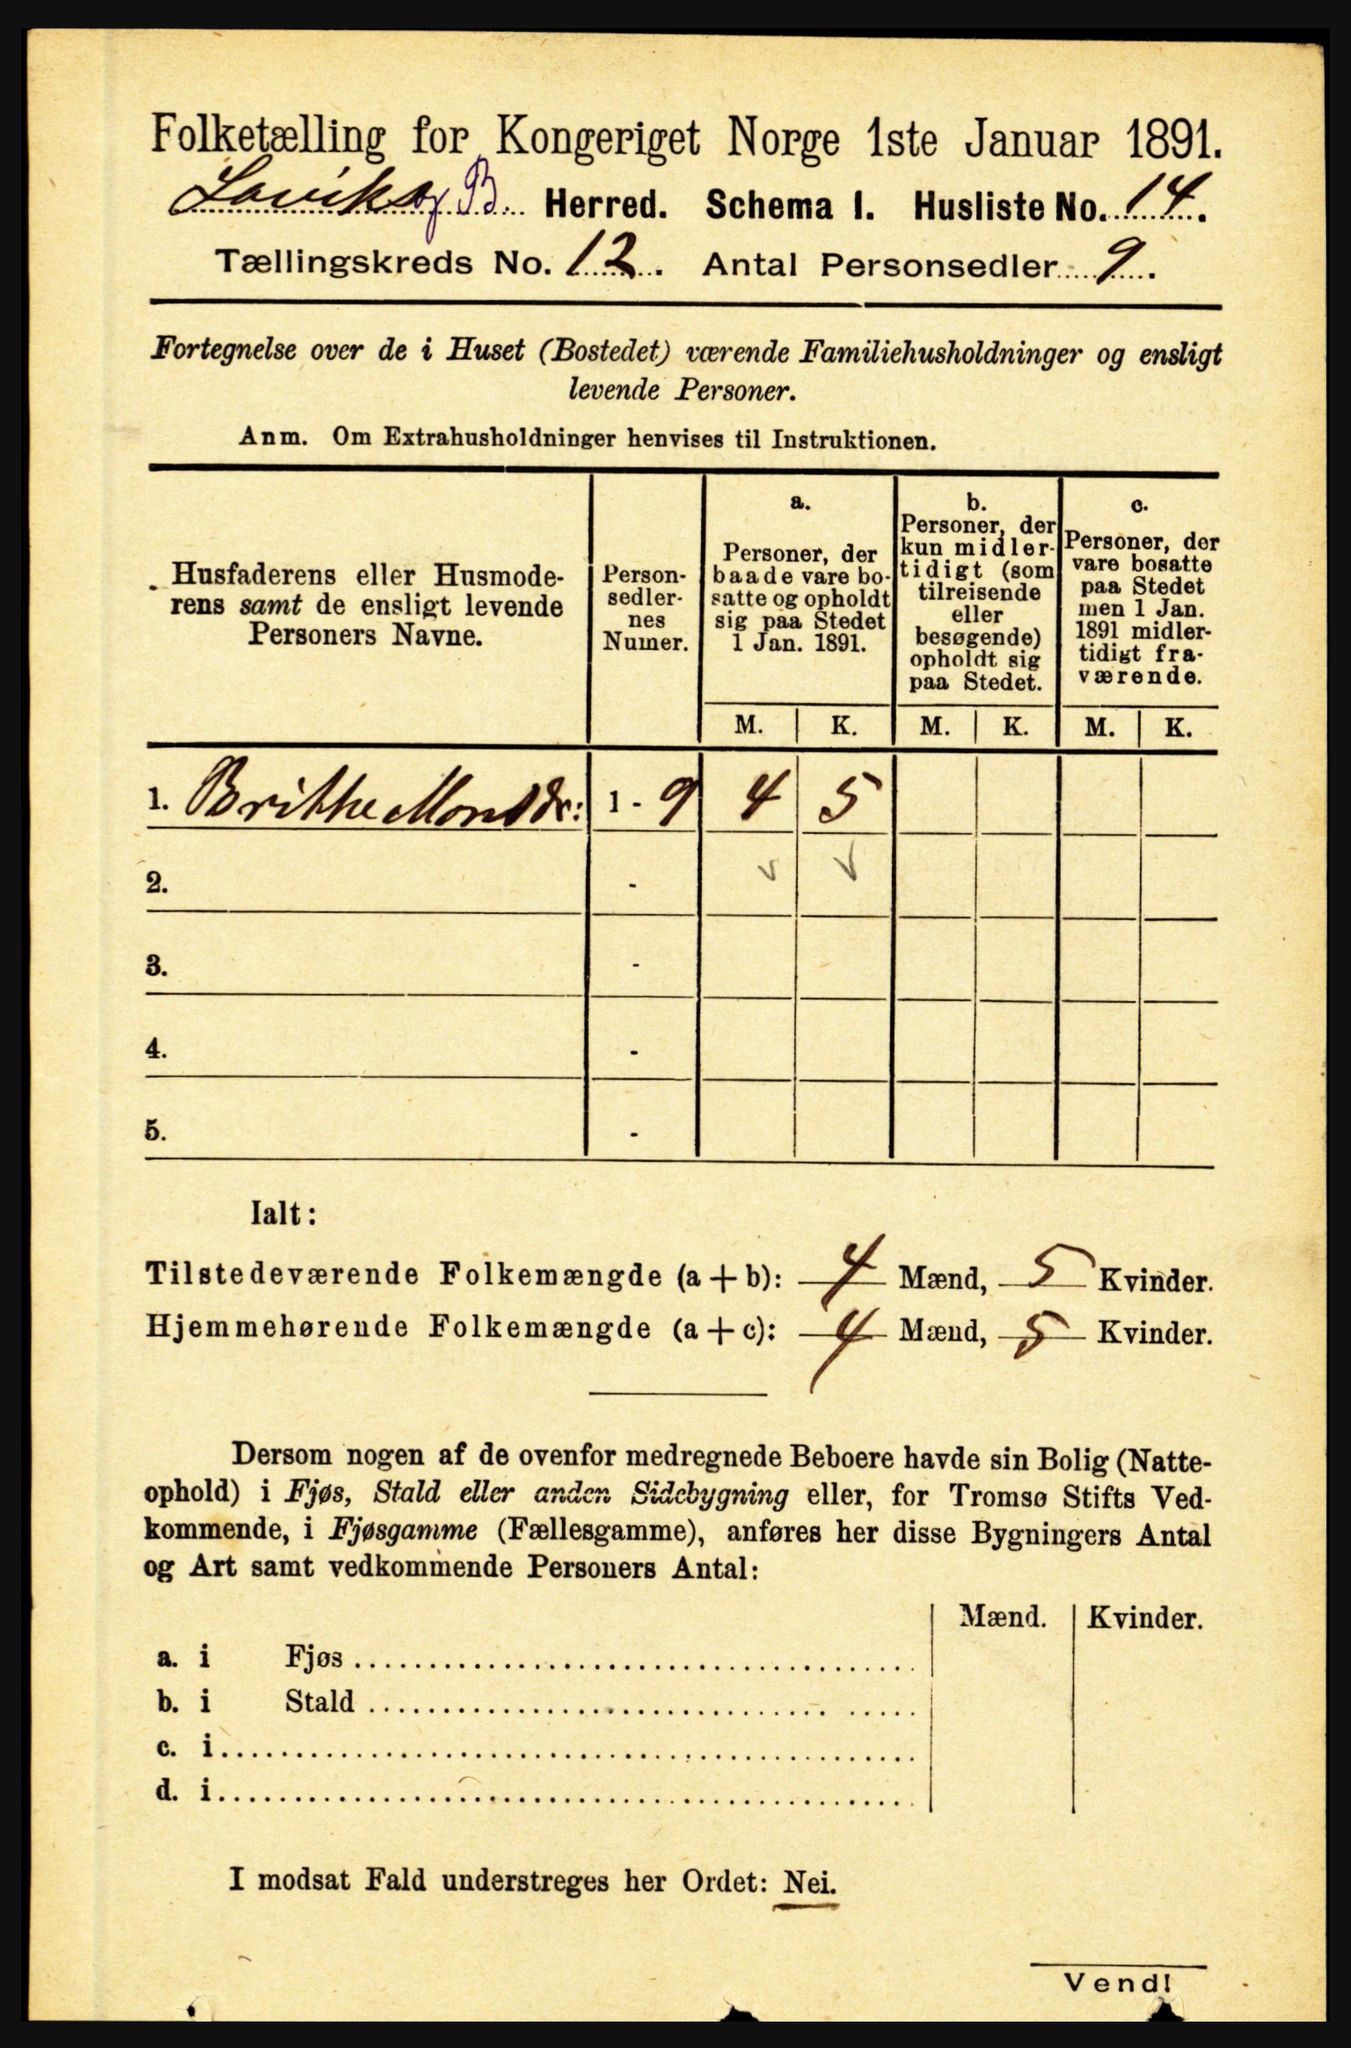 Folketælling for Kongeriget Norge 1ste Januar 1891.
Laviks og B. Herred. Schema I. Husliste No. 14.
Tællingskreds No. 12. Antal Personsedler 9.
Fortegnelse over de i Huset (Bostedet) værende Familiehusholdninger og ensligt
levende Personer.
Anm. Om Extrahusholdninger henvises til Instruktionen.
Husfaderens eller Husmode-
rens samt de ensligt levende
Personers Navne.
Person-
sedler-
nes
Numer.
a.
Personer, der
baade vare bo-
satte og opholdt
sig paa Stedet
1 Jan. 1891.
b.
Personer, der
kun midler-
tidigt (som
tilreisende
eller
besøgende)
opholdt sig
paa Stedet.
c.
Personer, der
vare bosatte
paa Stedet
men 1 Jan.
1891 midler-
tidigt fra-
værende.
M. K. M. K. M. K.
1. Brithe Monsdr: 1 - 9 4 5
2. -
3. -
4. -
5. -
Ialt:
Tilstedeværende Folkemængde (a + b): 4 Mænd, 5 Kvinder.
Hjemmehørende Folkemængde (a + c): 4 Mænd, 5 Kvinder.
Dersom nogen af de ovenfor medregnede Beboere havde sin Bolig (Natte-
ophold) i Fjøs, Stald eller anden Sidebygning eller, for Tromsø Stifts Ved-
kommende, i Fjøsgamme (Fællesgamme), anføres her disse Bygningers Antal
og Art samt vedkommende Personers Antal:
Mænd. Kvinder.
a. i Fjøs
b. i Stald
c. i
d. i
I modsat Fald understreges her Ordet: Nei.
Vend!